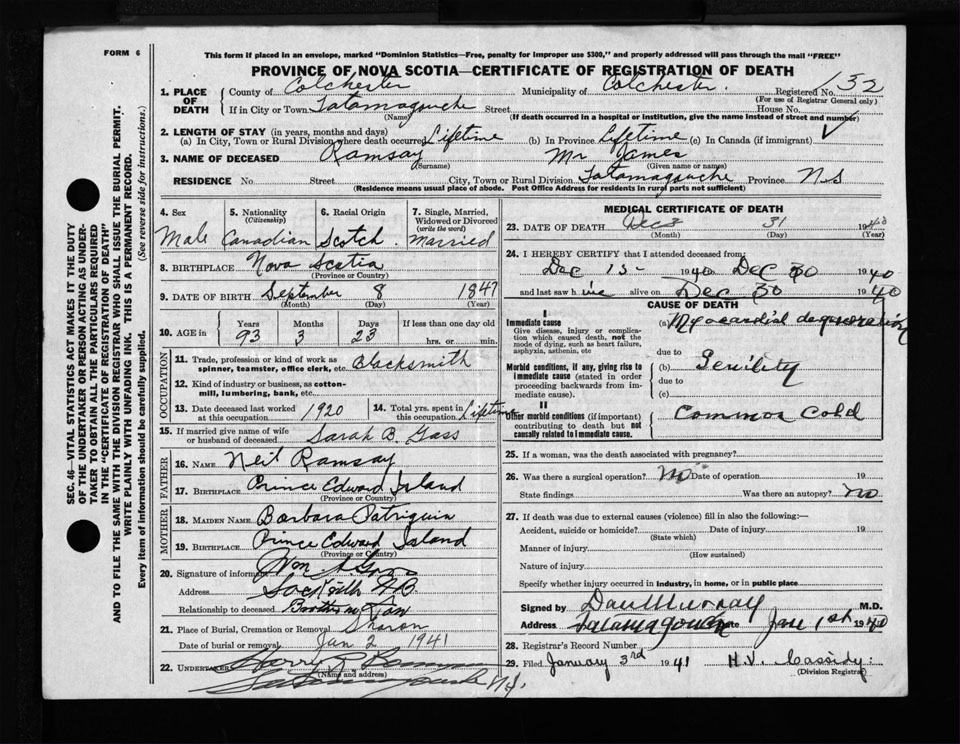 FORM 6
This form if placed in an envelope, marked "Dominion Statistics—Free, penalty for improper use $300," and properly addressed will pass through the mail "FREE"
PROVINCE OF NOVA SCOTIA—CERTIFICATE OF REGISTRATION OF DEATH
1. PLACE OF DEATH
County of Colchester Municipality of Colchester. Registered No. 132
(For use of Registrar General only)
If in City or Town Tatamagouche Street House No.
(Name) (If death occurred in a hospital or institution, give the name instead of street and number)
2. LENGTH OF STAY (in years, months and days)
(a) In City, Town or Rural Division where death occurred Lifetime (b) In Province Lifetime (c) In Canada (if immigrant) ✓
3. NAME OF DECEASED Ramsay Mr James
(Surname) (Given name or names)
RESIDENCE No. Street City, Town or Rural Division Tatamagouche Province N.S
(Residence means usual place of abode. Post Office Address for residents in rural parts not sufficient)
4. Sex Male
5. Nationality (Citizenship) Canadian
6. Racial Origin Scotch.
7. Single, Married, Widowed or Divorced (write the word) Married
8. BIRTHPLACE Nova Scotia
(Province or Country)
9. DATE OF BIRTH September 8 1847
(Month) (Day) (Year)
10. AGE in Years 93 Months 3 Days 23 If less than one day old hrs. or min.
OCCUPATION
11. Trade, profession or kind of work as spinner, teamster, office clerk, etc. Blacksmith
12. Kind of industry or business, as cotton-mill, lumbering, bank, etc.
13. Date deceased last worked at this occupation 1920
14. Total yrs. spent in this occupation Lifetime
15. If married give name of wife or husband of deceased Sarah B. Gass
FATHER
16. NAME Neil Ramsay
17. BIRTHPLACE Prince Edward Island
(Province or Country)
MOTHER
18. MAIDEN NAME Barbara Patriquin
19. BIRTHPLACE Prince Edward Island
(Province or Country)
20. Signature of informant Wm A Gass
Address
Relationship to deceased Brother in Law
21. Place of Burial, Cremation or Removal Sharon
Date of burial or removal Jan 2 1941
22. UNDERTAKER Harry
(Name and address)
Tatamagouche N.S.
MEDICAL CERTIFICATE OF DEATH
23. DATE OF DEATH Dec 31 1940
(Month) (Day) (Year)
24. I HEREBY CERTIFY that I attended deceased from:
Dec 15- 1940 Dec 30 1940
and last saw him alive on Dec 30 1940
CAUSE OF DEATH
I
Immediate cause
Give disease, injury or complication which caused death, not the mode of dying, such as heart failure, asphyxia, asthenia, etc
(a) Myocardial degeneration
due to
Morbid conditions, if any, giving rise to immediate cause (stated in order proceeding backwards from immediate cause).
(b) Senility
due to
(c)
II
Other morbid conditions (if important) contributing to death but not causally related to immediate cause.
Common Cold
25. If a woman, was the death associated with pregnancy?
26. Was there a surgical operation? No Date of operation 19
State findings Was there an autopsy? No
27. If death was due to external causes (violence) fill in also the following:—
Accident, suicide or homicide? Date of injury 19
(State which)
Manner of injury
(How sustained)
Nature of injury
Specify whether injury occurred in industry, in home, or in public place
Signed by Dan Murray M.D.
Address Tatamagouche Date Jan 1st 1940
28. Registrar's Record Number
29. Filed January 3rd 1941 H.V. Cassidy.
(Division Registrar)
SEC. 46—VITAL STATISTICS ACT MAKES IT THE DUTY OF THE UNDERTAKER OR PERSON ACTING AS UNDERTAKER TO OBTAIN ALL THE PARTICULARS REQUIRED IN THE "CERTIFICATE OF REGISTRATION OF DEATH"
AND TO FILE THE SAME WITH THE DIVISION REGISTRAR WHO SHALL ISSUE THE BURIAL PERMIT.
WRITE PLAINLY WITH UNFADING INK. THIS IS A PERMANENT RECORD.
Every item of information should be carefully supplied. (See reverse side for instructions.)